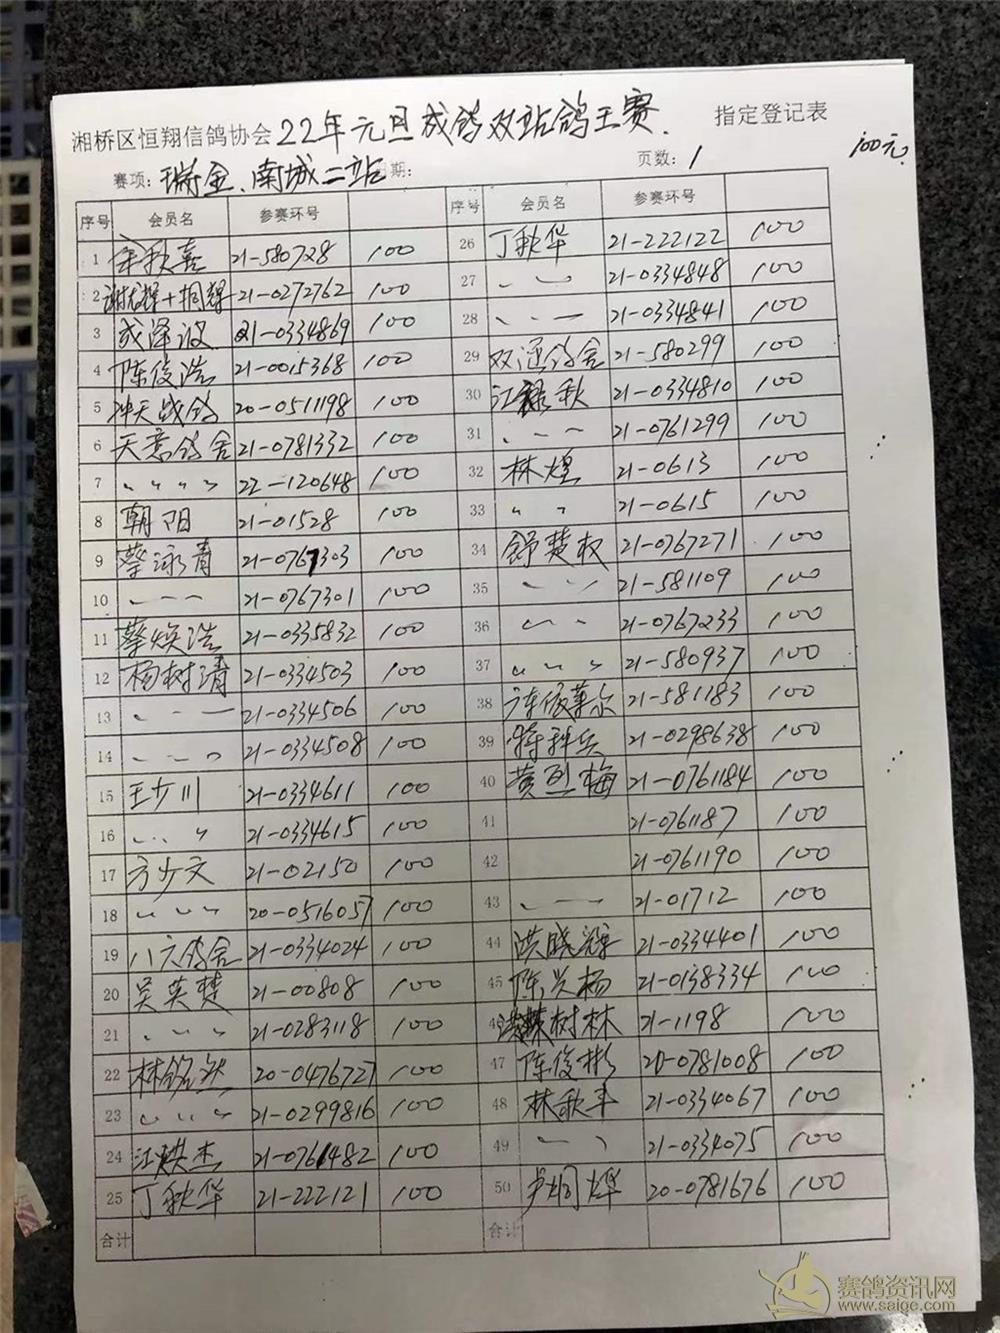 湘桥区恒翔信鸽协会 22年元旦成鸽双站鸽王赛. 指定登记表
赛项: 瑞金、南城二站 日期: 页数: 1 100元.
序号 会员名 参赛环号 序号 会员名 参赛环号
1 秋喜 21-580728 100 26 丁秋华 21-222122 100
2 21-0272762 100 27 〃 〃 21-0334848 100
3 成泽波 21-0334869 100 28 〃 〃 21-0334841 100
4 陈俊浩 21-0015368 100 29 双通鸽舍 21-580299 100
5 冲天战鸽 20-0511198 100 30 江秋 21-0334810 100
6 天意鸽舍 21-0781332 100 31 〃 〃 〃 21-0761299 100
7 〃 〃 〃 〃 22-120648 100 32 林煌 21-0613 100
8 朝阳 21-01528 100 33 〃 〃 21-0615 100
9 蔡泳青 21-0767303 100 34 舒楚权 21-0767271 100
10 〃 〃 〃 21-0767301 100 35 〃 〃 21-581109 100
11 蔡焕浩 21-0335832 100 36 〃 〃 21-0767233 100
12 杨树清 21-0334503 100 37 〃 〃 〃 21-580937 100
13 〃 〃 〃 21-0334506 100 38 21-581183 100
14 〃 〃 〃 21-0334508 100 39 特种兵 21-0298638 100
15 王少川 21-0334611 100 40 黄烈梅 21-0761184 100
16 〃 〃 〃 21-0334615 100 41 21-0761187 100
17 方少文 21-02150 100 42 21-0761190 100
18 〃 〃 〃 20-0516057 100 43 〃 〃 〃 21-01712 100
19 八六鸽舍 21-0334024 100 44 洪晓辉 21-0334401 100
20 吴英楚 21-00808 100 45 陈兴杨 21-0138334 100
21 〃 〃 〃 21-0283118 100 46 树林 21-1198 100
22 林铭 20-0476727 100 47 陈俊彬 20-0781008 100
23 〃 〃 〃 21-0299816 100 48 林秋平 21-0334067 100
24 江烘杰 21-0761482 100 49 〃 〃 21-0334075 100
25 丁秋华 21-222121 100 50 卢炯烨 20-0781676 100
合计 合计
赛鸽资讯网
www.saige.com